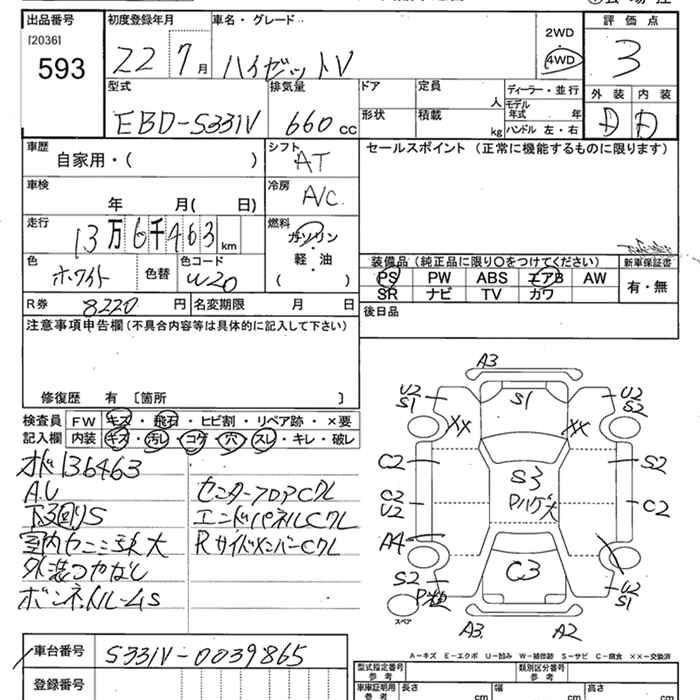 出品番号
[2036]
593
初度登録年月
22 7月
車名・グレード
ハイゼットV
2WD
・
4WD
評価点
3
型式
EBD-S331V
排気量
660cc
ドア
定員
人
ディーラー・並行
形状
積載
kg
モデル年式 年
ハンドル 左・右
外装 内装
D D
車歴
自家用・( )
シフト
AT
セールスポイント (正常に機能するものに限ります)
車検
年 月( 日)
冷房
A/C
走行
13万6千463km
燃料
ガソリン
・
軽油
( )
色
ホワイト
色替
色コード
W20
装備品(純正品に限り○をつけてください)
新車保証書
PS PW ABS エアB AW
SR ナビ TV カワ
有・無
R券
8220円
名変期限 月 日
後日品
注意事項申告欄(不具合内容等は具体的に記入して下さい)
修復歴 有 〔箇所 〕
検査員
記入欄
FW キズ・飛石・ヒビ割・リペア跡・×要
内装 キズ・汚れ・コゲ・穴・スレ・キレ・破レ
メ 136463
A.U
下回りS
室内セニミ 大
外装つやなし
ボンネトルームS
センターフロアCクレ
エンドパネルCクレ
RサイドメンバーCクレ
A3
U2
S1
S1
U2
S2
XX
XX
C2
S3
S2
C2
U2
C2
A4
C3
S2
U2
S1
スペア
A3
A2
A-キズ E-エクボ U-凹み W-補修跡 S-サビ C-腐食 XX-交換済
車台番号
S331V-0039865
登録番号
型式指定番号
参考
類別区分番号
参考
車庫証明用
参考
長さ cm
幅 cm
高さ cm